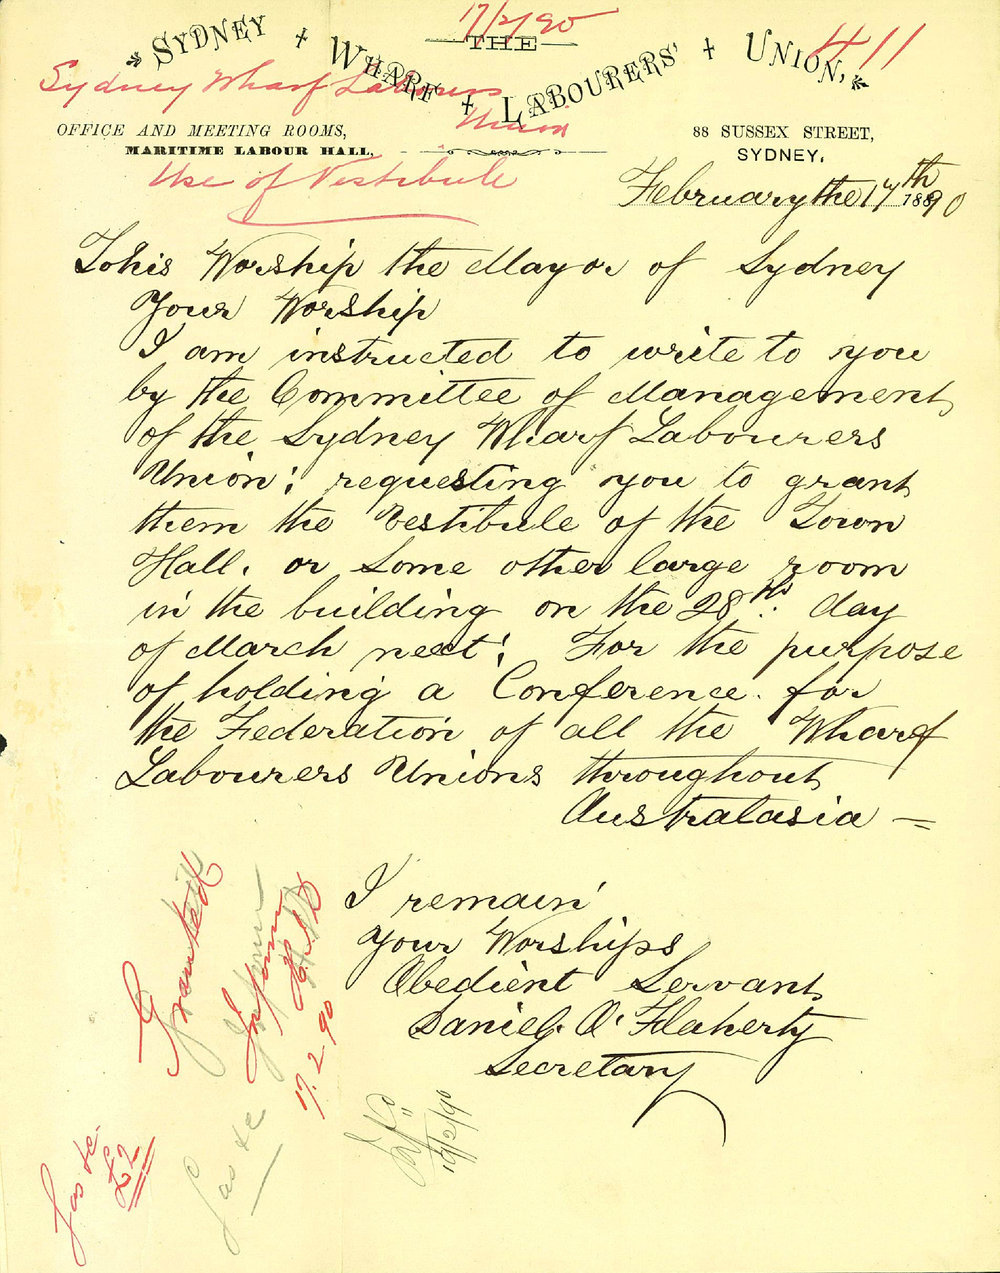 17/2/90
411
THE
SYDNEY WHARF LABOURERS' UNION,
Sydney Wharf Labourers
Union
OFFICE AND MEETING ROOMS,
MARITIME LABOUR HALL,
88 SUSSEX STREET,
SYDNEY,
Use of Vestibule
February the 17th 1890
To his Worship the Mayor of Sydney
Your Worship
I am instructed to write to you
by the Committee of Management
of the Sydney Wharf Labourers
Union; requesting you to grant
them the Vestibule of the Town
Hall. or some other large room
in the building on the 28th. day
of March next; For the purpose
of holding a Conference. for
the Federation of all the Wharf
Labourers Unions throughout
Australasia =
I remain
Your Worships
Obedient Servant
Daniel. O'Flaherty
Secretary
Granted
Inform
17.2.90
Gas &c
£2
Gas &c
19/2/90